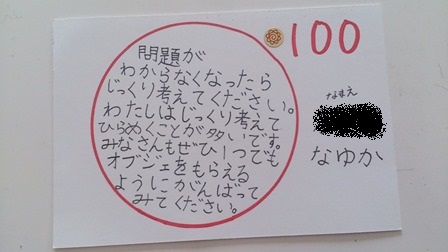 100
問題が
わからなくなったら
じっくり考えてください。
わたしはじっくり考えて
ひらめくことが多いです。
みなさんもぜひ1つでも
オブジェをもらえる
ようにがんばって
みてください。
なまえ
なゆか